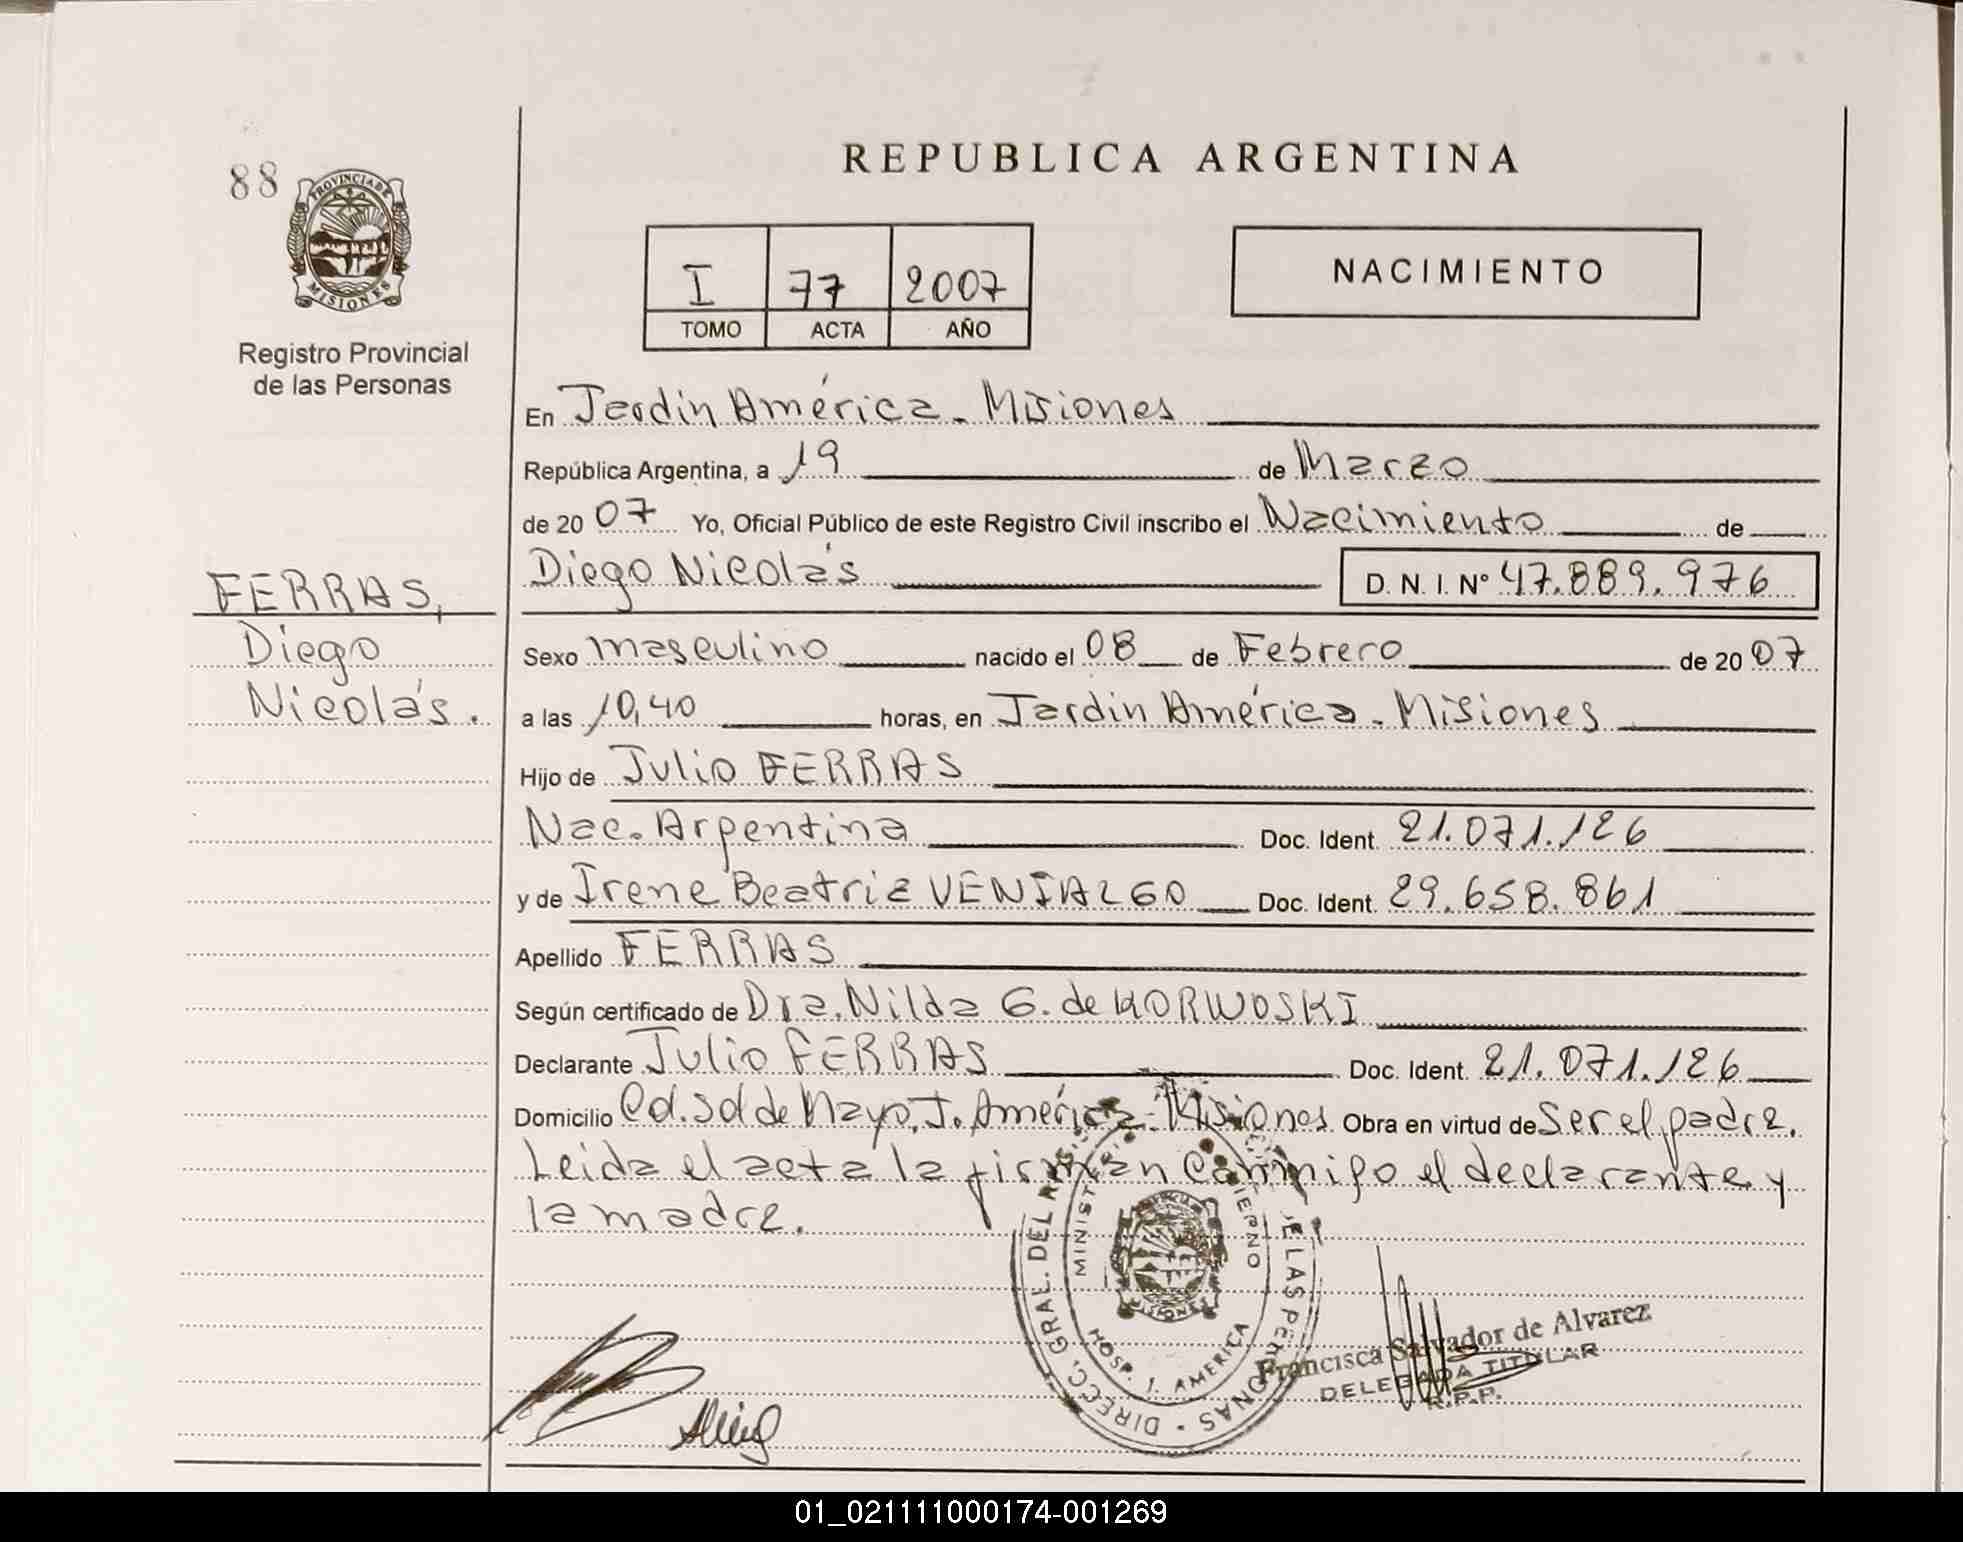 88
PROVINCIA DE
MISIONES
Registro Provincial
de las Personas
REPUBLICA ARGENTINA
I 77 2007
TOMO ACTA AÑO
NACIMIENTO
En Jardín América - Misiones
República Argentina, a 19 de Marzo
de 2007 Yo, Oficial Público de este Registro Civil inscribo el Nacimiento de
Diego Nicolás D. N. I. Nº 47.889.976
FERRAS,
Diego
Nicolás.
Sexo masculino nacido el 08 de Febrero de 2007
a las 10,40 horas, en Jardín América - Misiones
Hijo de Julio FERRAS
Nac. Argentina Doc. Ident. 21.071.126
y de Irene Beatriz VENIALGO Doc. Ident. 29.658.861
Apellido FERRAS
Según certificado de Dra. Nilda G. de KORWOSKI
Declarante Julio FERRAS Doc. Ident. 21.071.126
Domicilio Cd. Sol de Mayo, J. América - Misiones Obra en virtud de Ser el padre.
Leída el acta la firman conmigo el declarante y
la madre.
DIRECC. GRAL. DEL DE LAS PERSONAS
HOSP. J. AMERICA
MISIONES
Francisca Salvador de Alvarez
DELEGADA TITULAR
R.P.P.
01_021111000174-001269